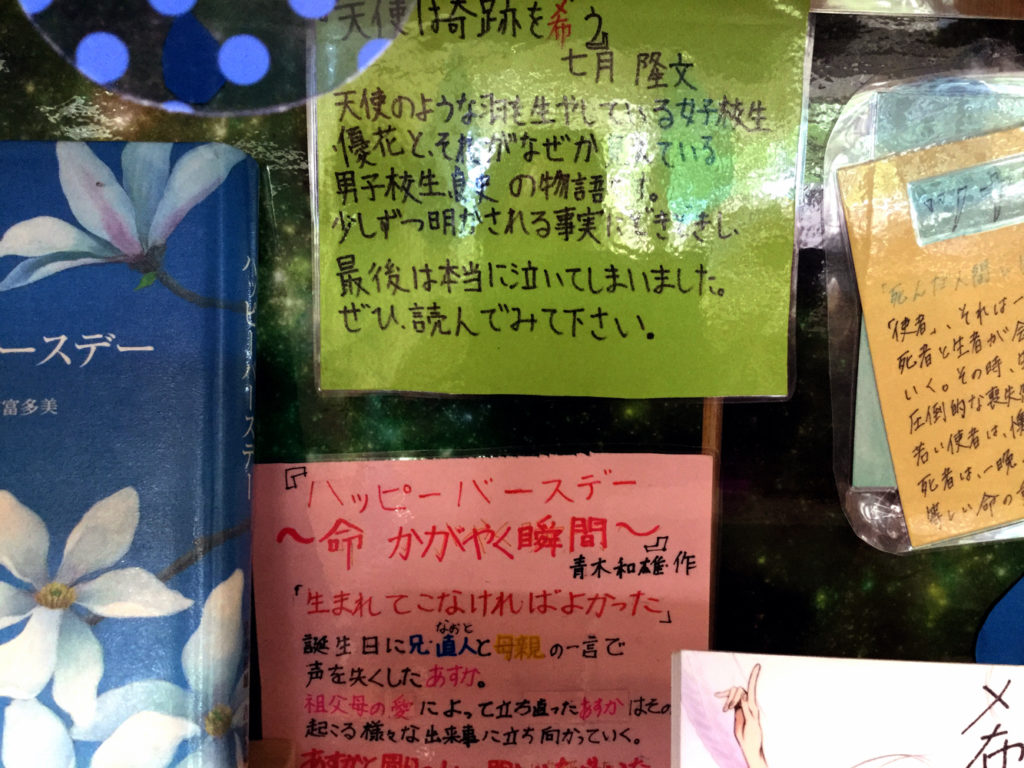 『天使は奇跡を希う』
七月 隆文
天使のような 生やしている女子校生
優花と、それがなぜか ている
男子校生 の物語
少しずつ明かされる事実にどきどきし、
最後は本当に泣いてしまいました。
ぜひ、読んでみて下さい。
ースデー
富多美
ハッピーバースデー
『ハッピーバースデー
〜命 かがやく瞬間〜』
青木和雄・作
「生まれてこなければよかった」
誕生日に兄・直人と母親の一言で
なおと
声を失くしたあすか。
祖父母の愛によって立ち直ったあすかはその
起こる様々な出来事に立ち向かっていく。
「死んだ人間
「使者」、それは一
死者と生者が会
いく。その時、
圧倒的な喪失
若い使者は、
死者は、一晩
等しい命の
希